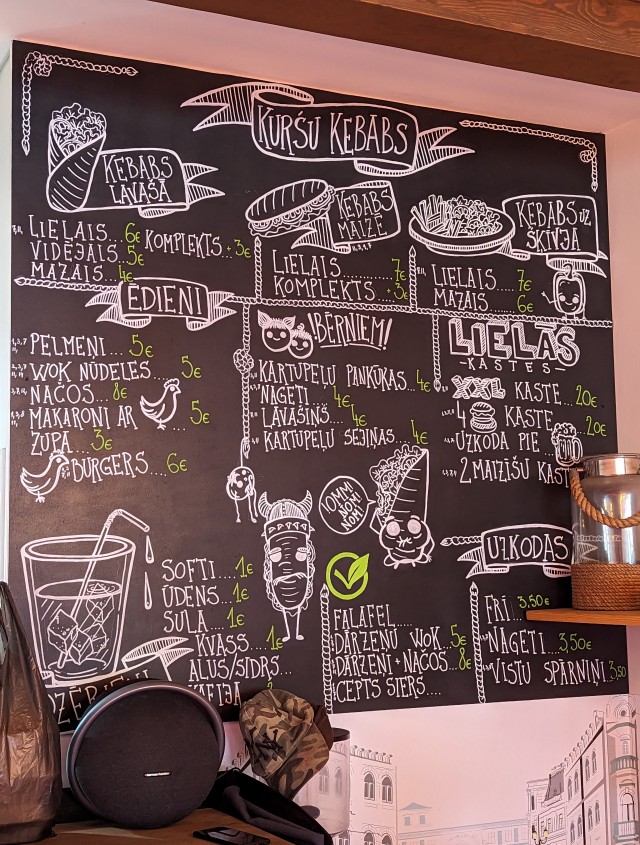 KURŠU KEBABS
KEBABS
LAVAŠĀ
LIELAIS.. 6€
VIDĒJAIS 5€
MAZAIS... 4€
KOMPLEKTS.. +3€
KEBABS
MAIZĒ
LIELAIS.......... 7€
KOMPLEKTS.. +3€
KEBABS UZ
ŠĶĪVJA
LIELAIS..... 7€
MAZAIS.... 6€
ĒDIENI
PELMEŅI.... 5€
WOK NŪDELES... 5€
NAČOS... 8€
MAKARONI AR ... 5€
ZUPA... 3€
BURGERS... 6€
BĒRNIEM!
KARTUPEĻU PANKŪKAS.. 4€
NAGETI... 4€
LAVAŠIŅŠ... 4€
KARTUPEĻU SEJIŅAS.. 4€
LIELĀS
-KASTES-
XXL KASTE... 20€
4 KASTE... 20€
UZKODA PIE
2 MAIZĪŠU KAST
ŅOMM!
NOM!
NOM!
SOFTI.... 1€
ŪDENS... 1€
SULA.... 1€
KVASS... 1€
ALUS/SIDRS...
KAFIJA
DZĒRIENI
FALAFEL.....
DĀRZEŅU WOK.. 5€
DĀRZEŅI + NAČOS.. 8€
CEPTS SIERS....
UZKODAS
FRĪ.. 3,50€
NAGETI... 3,50€
VISTU SPĀRNIŅI.. 3,50
harman/kardon